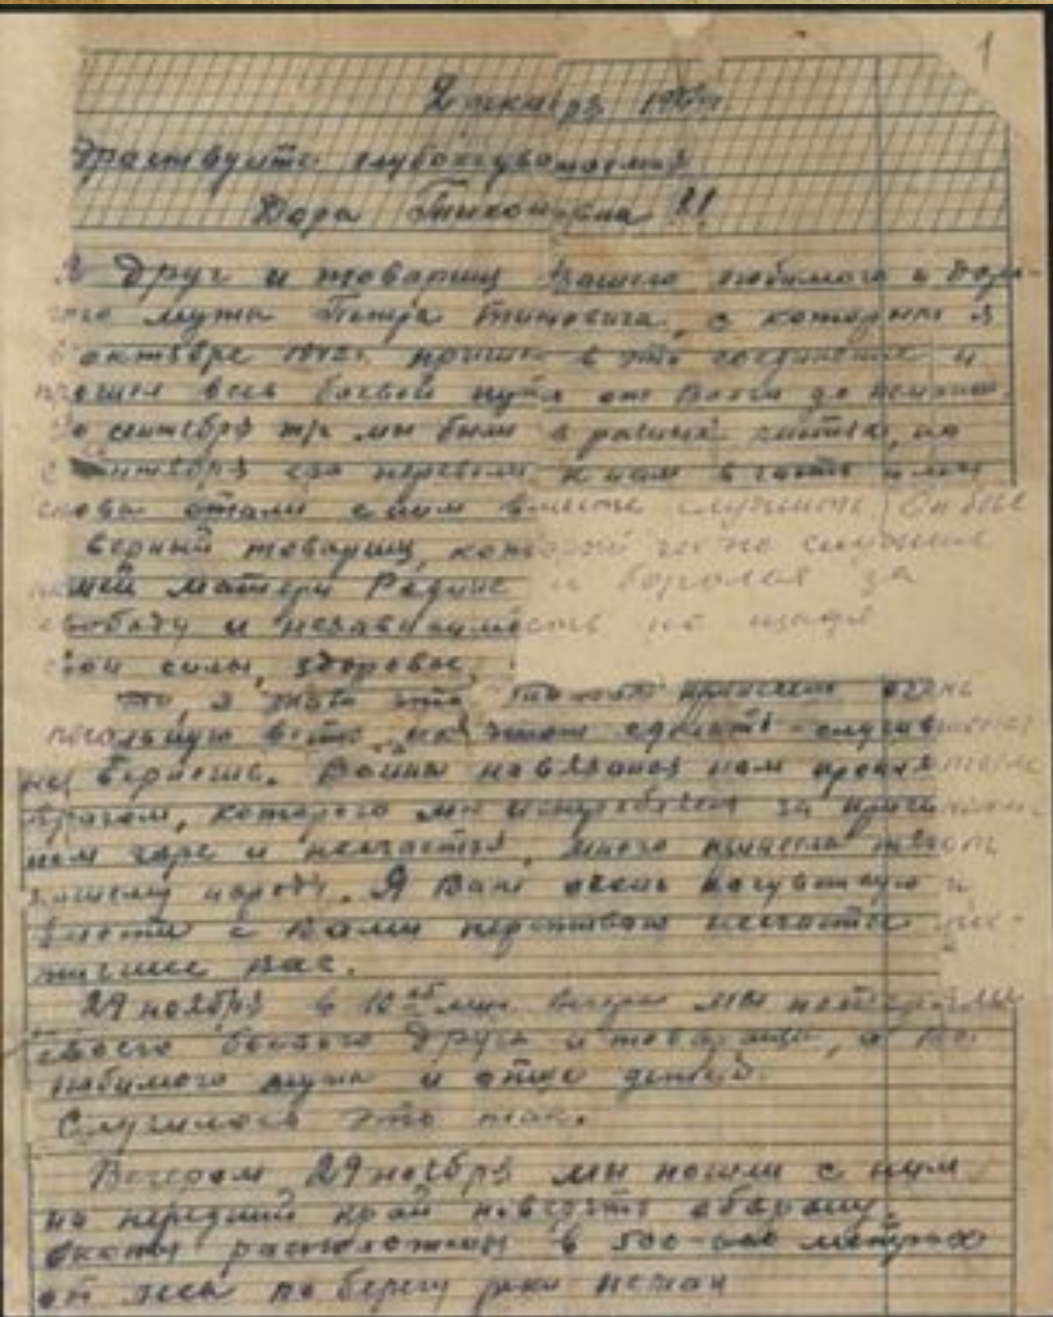 1
2 декабря 194 г.
Здраствуйте глубокоуважаемая
Дора Тихоновна!!
Я друг и товарищ Вашего любимого и доро-
гого мужа Петра, с которым я
в октябре 1942г. пришел в это соединение и
прошел весь боевой путь от Волги до Немана.
До сентября т/г мы были в разных частях, но
с сентября его перевели к нам в часть и мы
снова стали с ним вместе служить. Он был
верный товарищ, который честно служил
нашей матери Родине и боролся за
свободу и независимость не щадя
свои силы, здоровье.
то, я знаю это принесет очень
печальную весть, но что сделать - случившееся
не вернешь. Война навязана нам проклятым
врагом, которого мы истребляем за причинен
ное горе и несчастья, много принесла
нашему народу. Я Вам очень сочувствую и
вместе с Вами переживаю несчастье пос-
тигшее вас.
29 ноября в 10 мин. вечера мы потеряли
своего боевого друга и товарища, а Вы
любимого мужа и отца детей.
Случилось это так.
Вечером 29 ноября мы пошли с ним
на передний край проверять оборону.
Окопы расположены в 500-600 метрах
от леса по берегу реки Неман